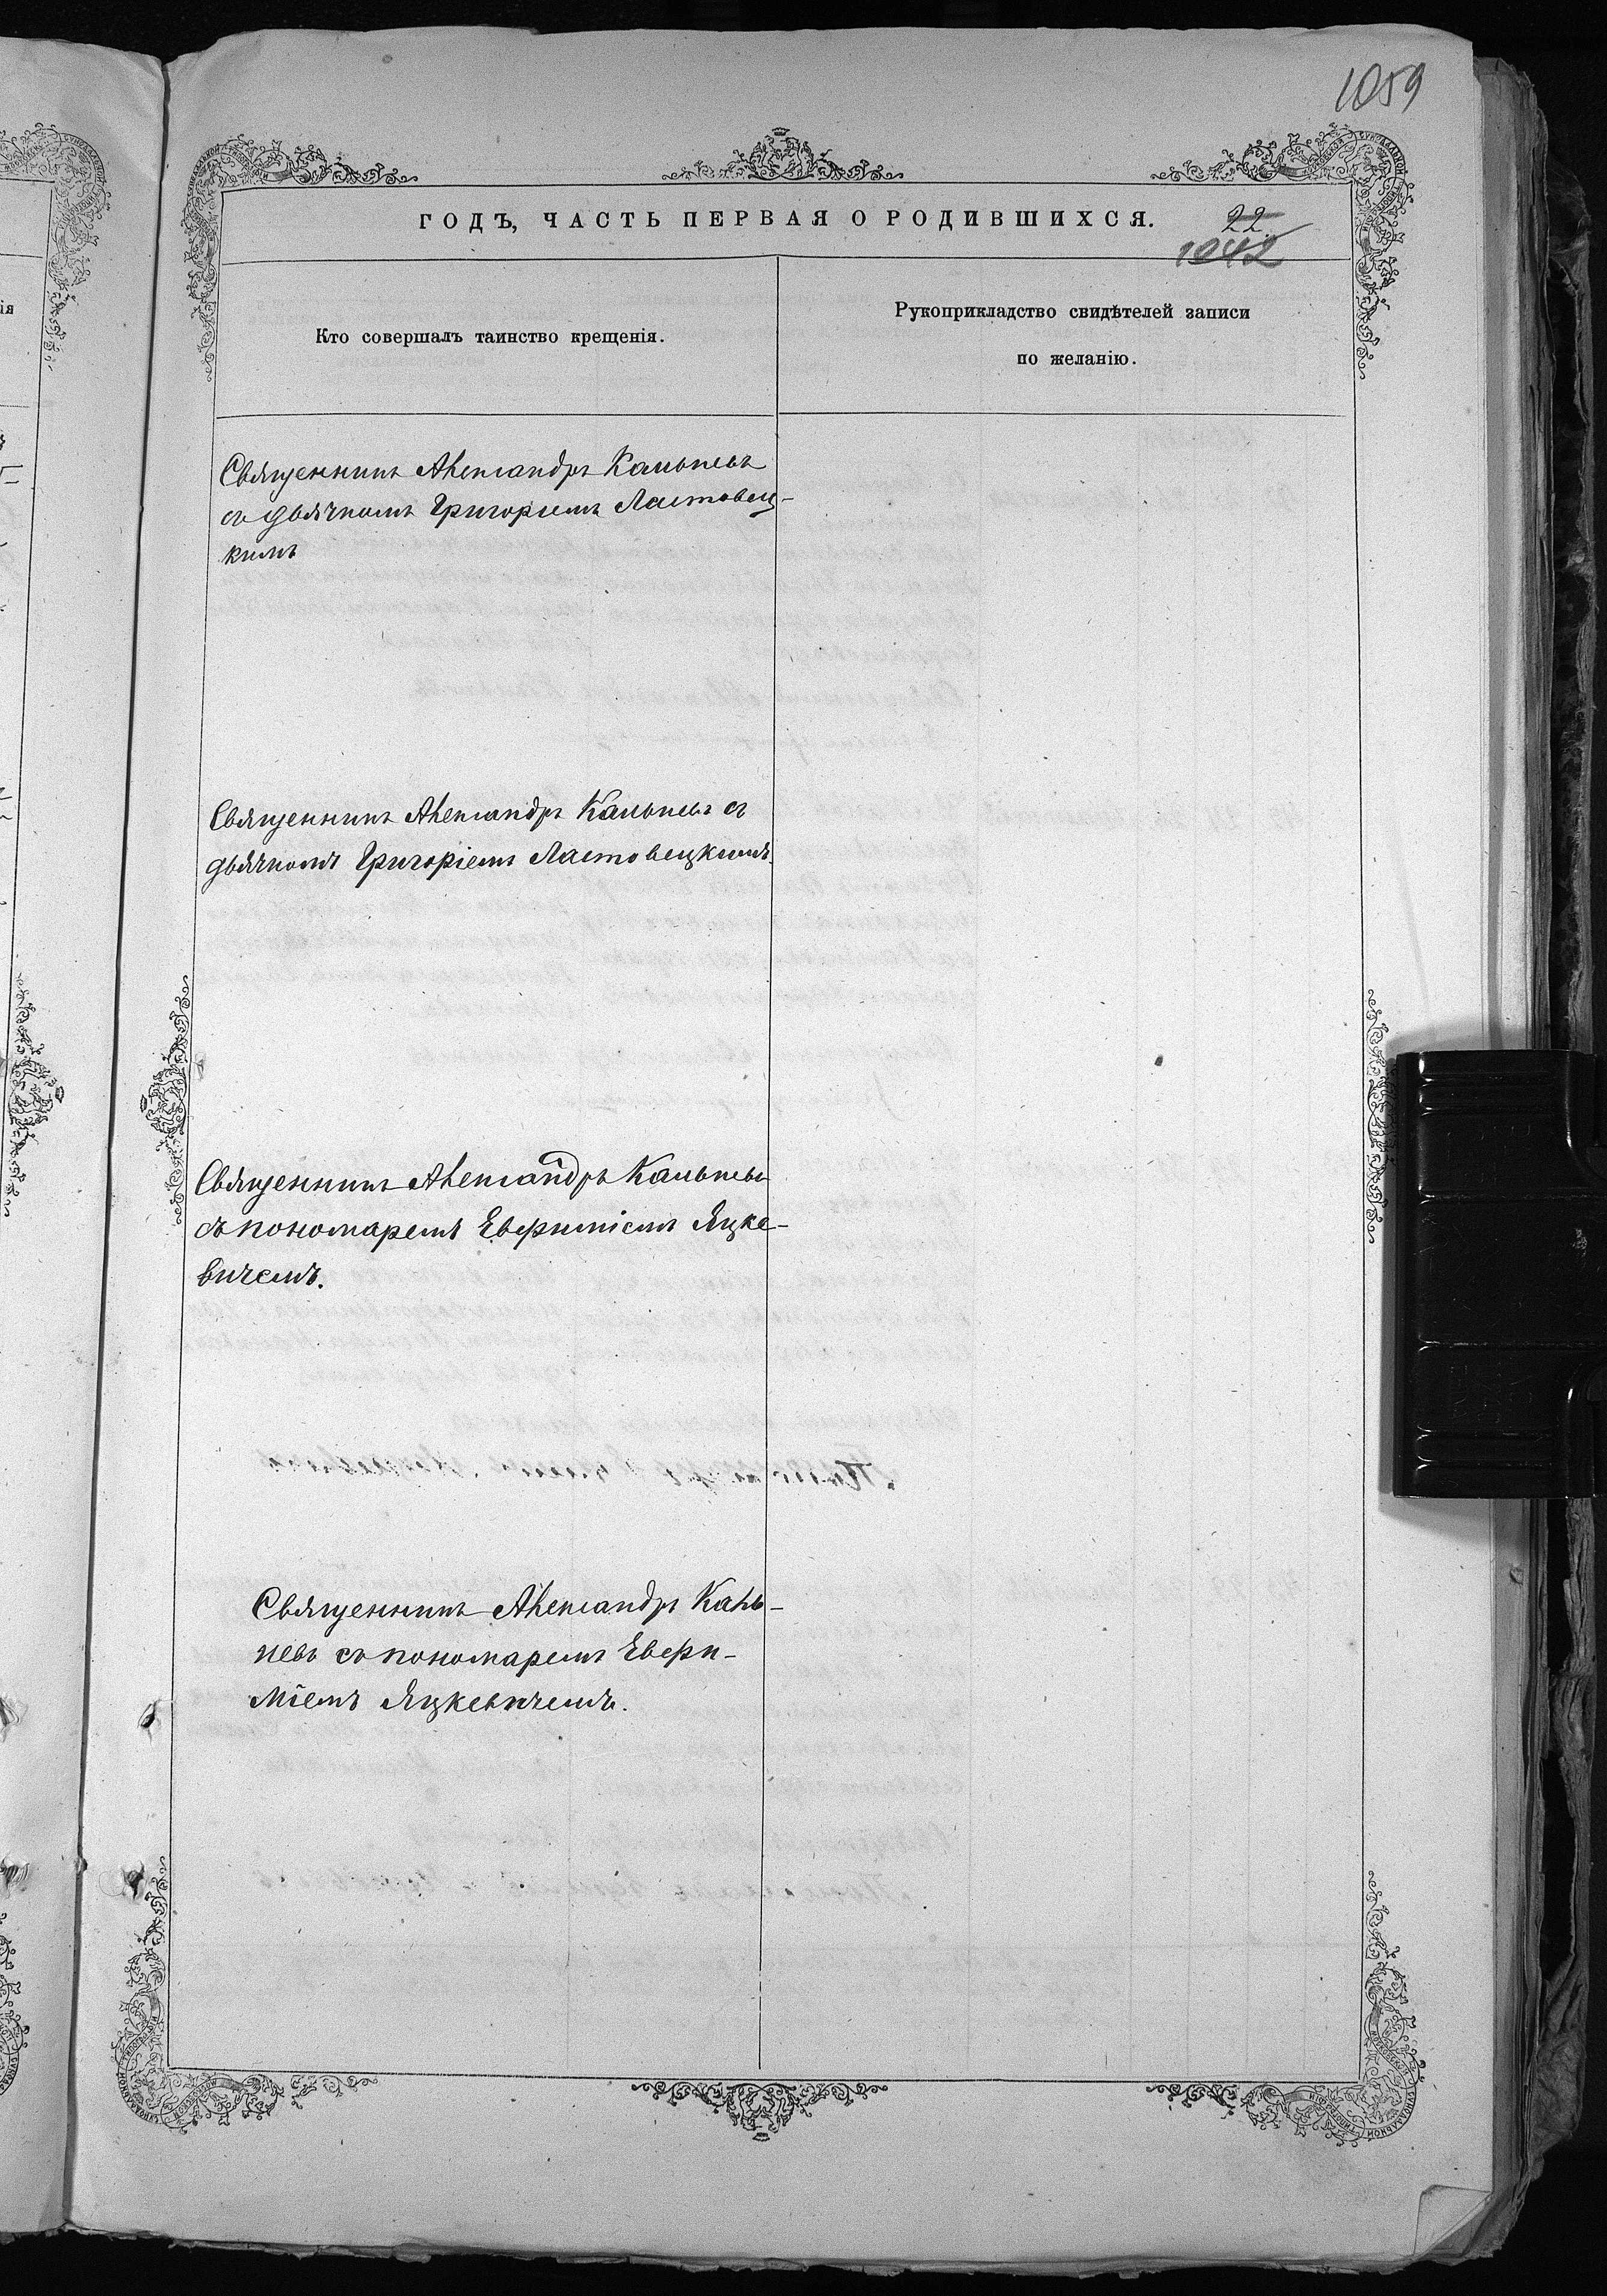 1059
ГОДЪ, ЧАСТЬ ПЕРВАЯ О РОДИВШИХСЯ.
22
1042
Кто совершалъ таинство крещенія.
Рукоприкладство свидѣтелей записи
по желанію.
Священникъ Александръ Кальневъ
съ дьячкомъ Григоріемъ Ластовец-
кимъ
Священникъ Александръ Кальневъ съ
дьячкомъ Григоріемъ Ластовецкимъ.
Священникъ Александръ Кальневъ
съ пономаремъ Евфиміемъ Яцке-
вичемъ.
Священникъ Александръ Каль-
невъ съ пономаремъ Евфи-
міемъ Яцкевичемъ.